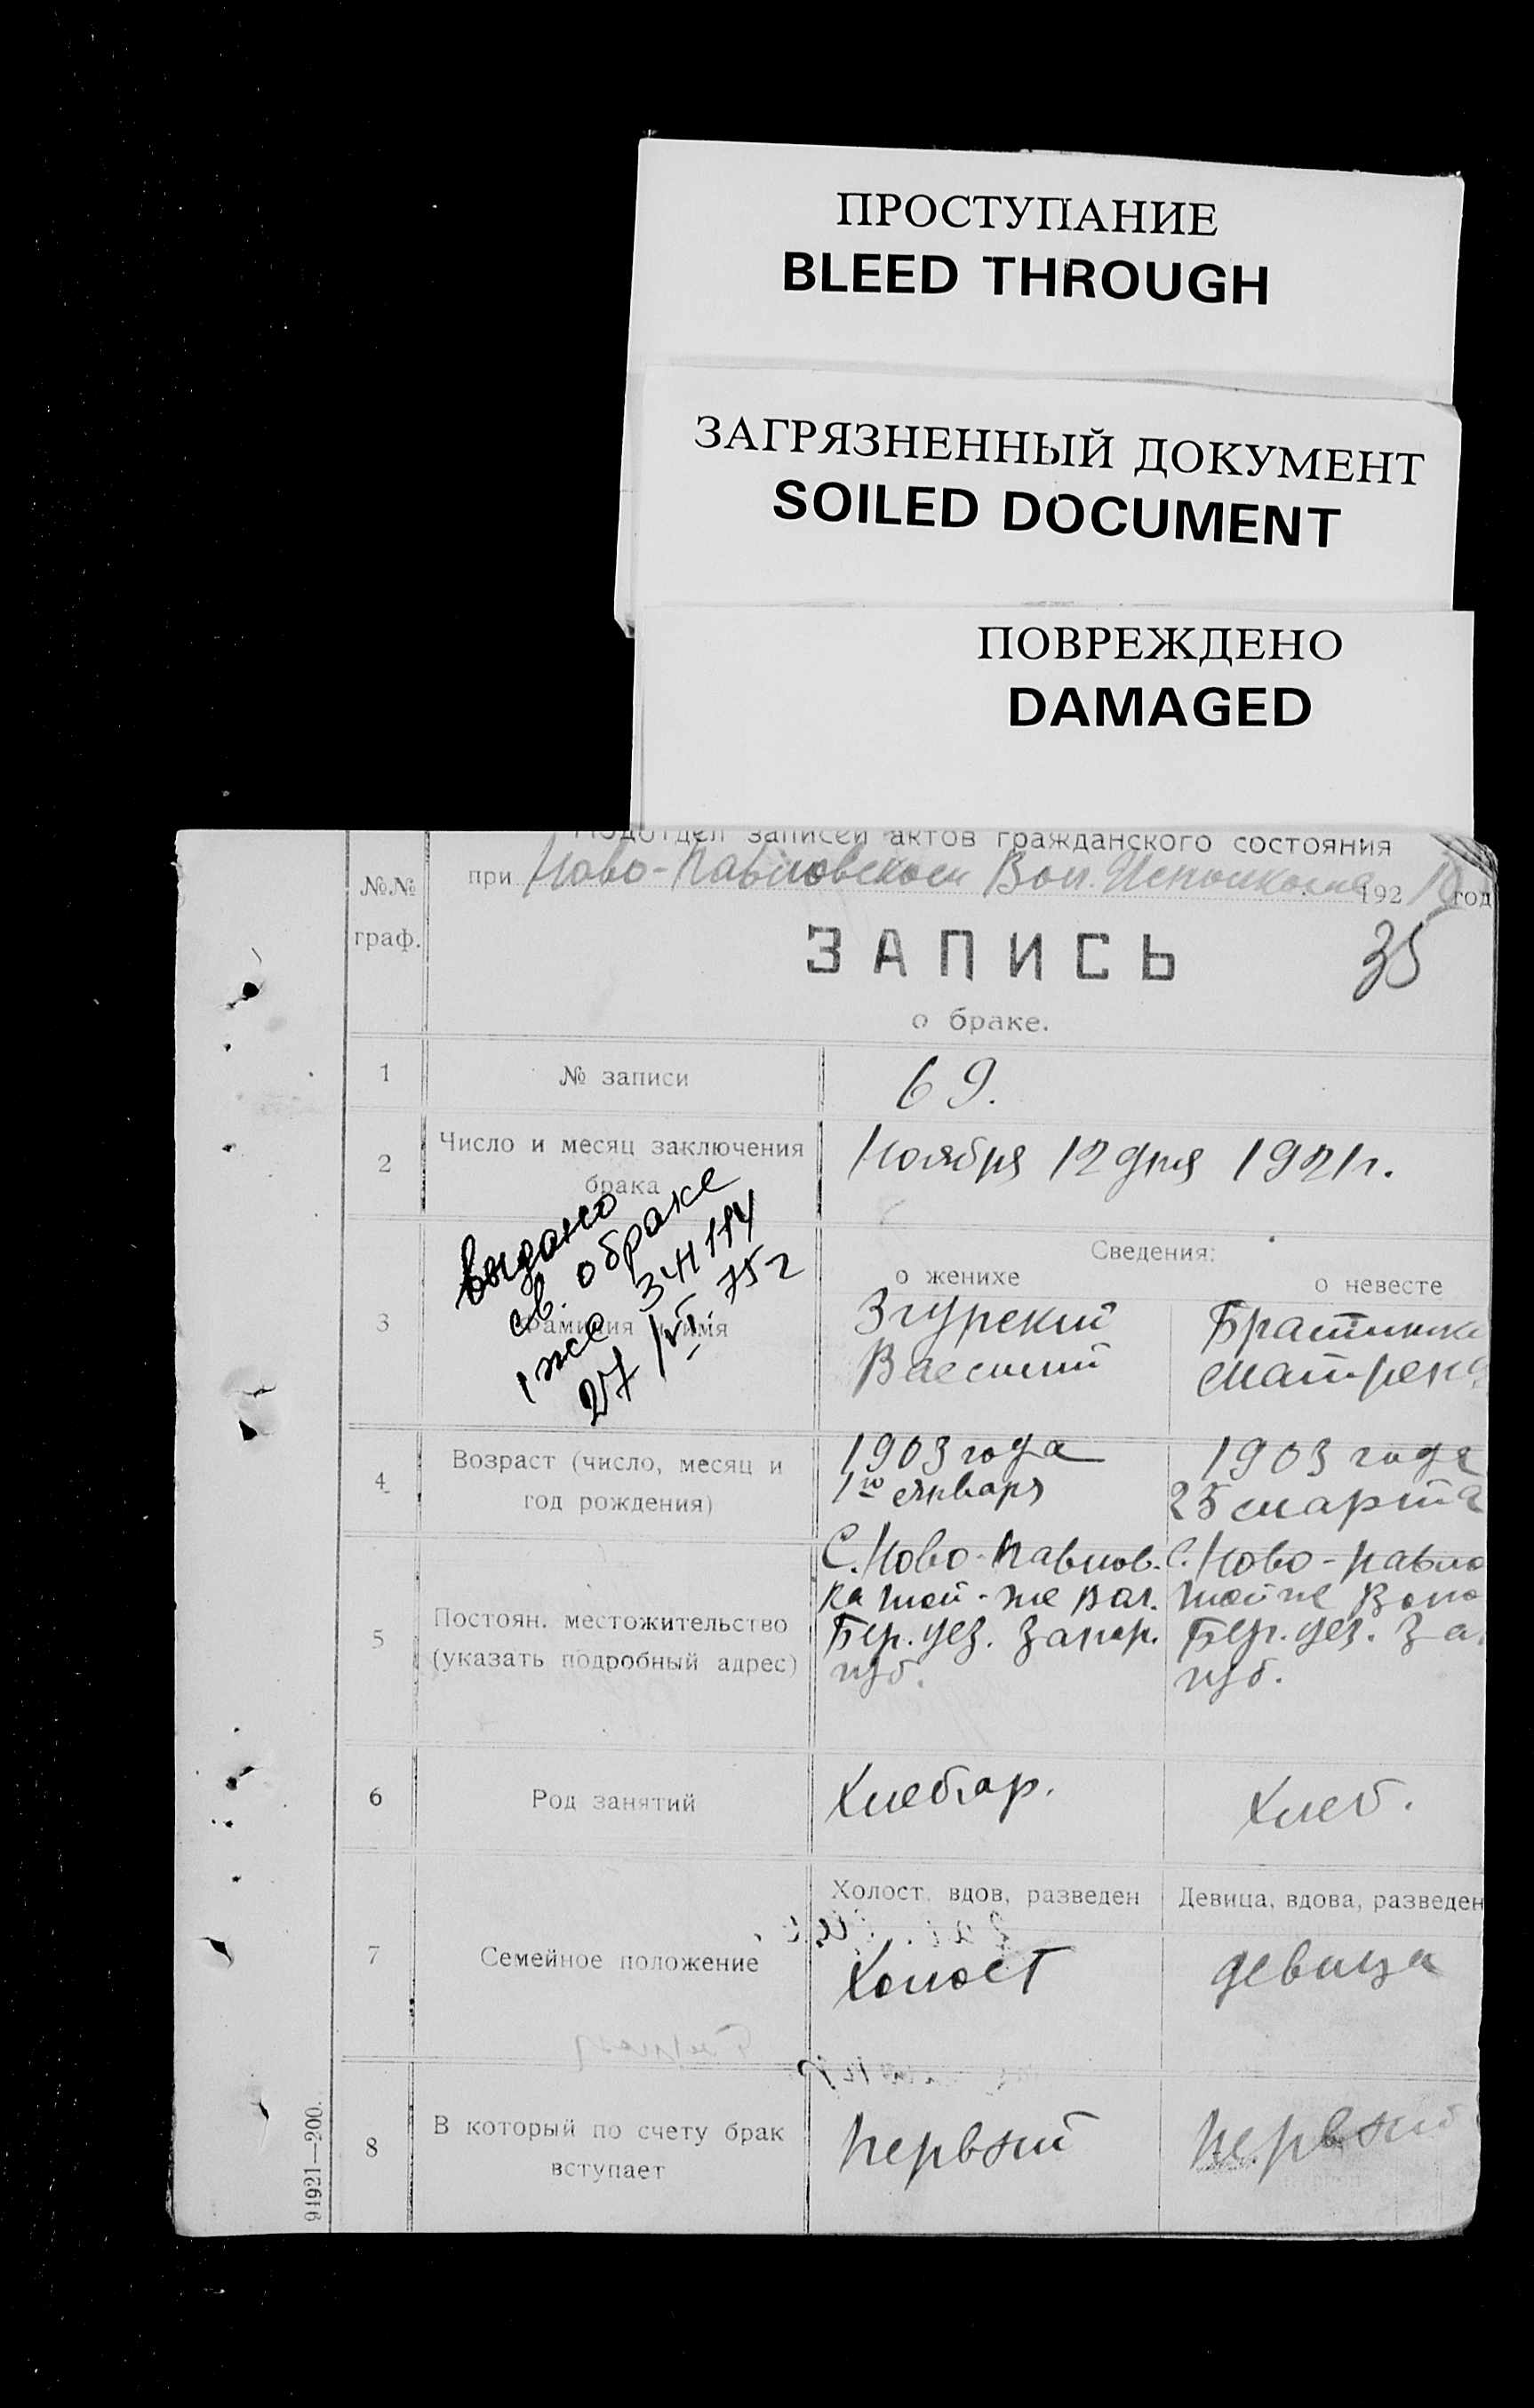 ПРОСТУПАНИЕ
BLEED THROUGH
ЗАГРЯЗНЕННЫЙ ДОКУМЕНТ
SOILED DOCUMENT
ПОВРЕЖДЕНО
DAMAGED
Подотдел записей актов гражданского состояния
№.№ при Ново-Павловском Вол. Исполкоме 192 год
граф.
ЗАПИСЬ 35
о браке.
1 № записи 69.
2 Число и месяц заключения брака Ноября 12 дня 1921 г.
выдано
св. о браке
27/VI 75 г
Сведения:
о женихе о невесте
3 Фамилия и имя
Згурский
Василий
Матрена
4 Возраст (число, месяц и
год рождения)
1903 года
1го января
1903 года
25 марта
5 Постоян. местожительство
(указать подробный адрес)
С. Ново-Павлов.
ка той-же вол.
Бер. уез. Запор.
губ.
С. Ново-Павло
той же Воло
Бер. уез. За
губ.
6 Род занятий Хлебоар. Хлеб.
Холост, вдов, разведен Девица, вдова, разведен
7 Семейное положение Холост девица
8 В который по счету брак
вступает
Первый Первый
91921—200.